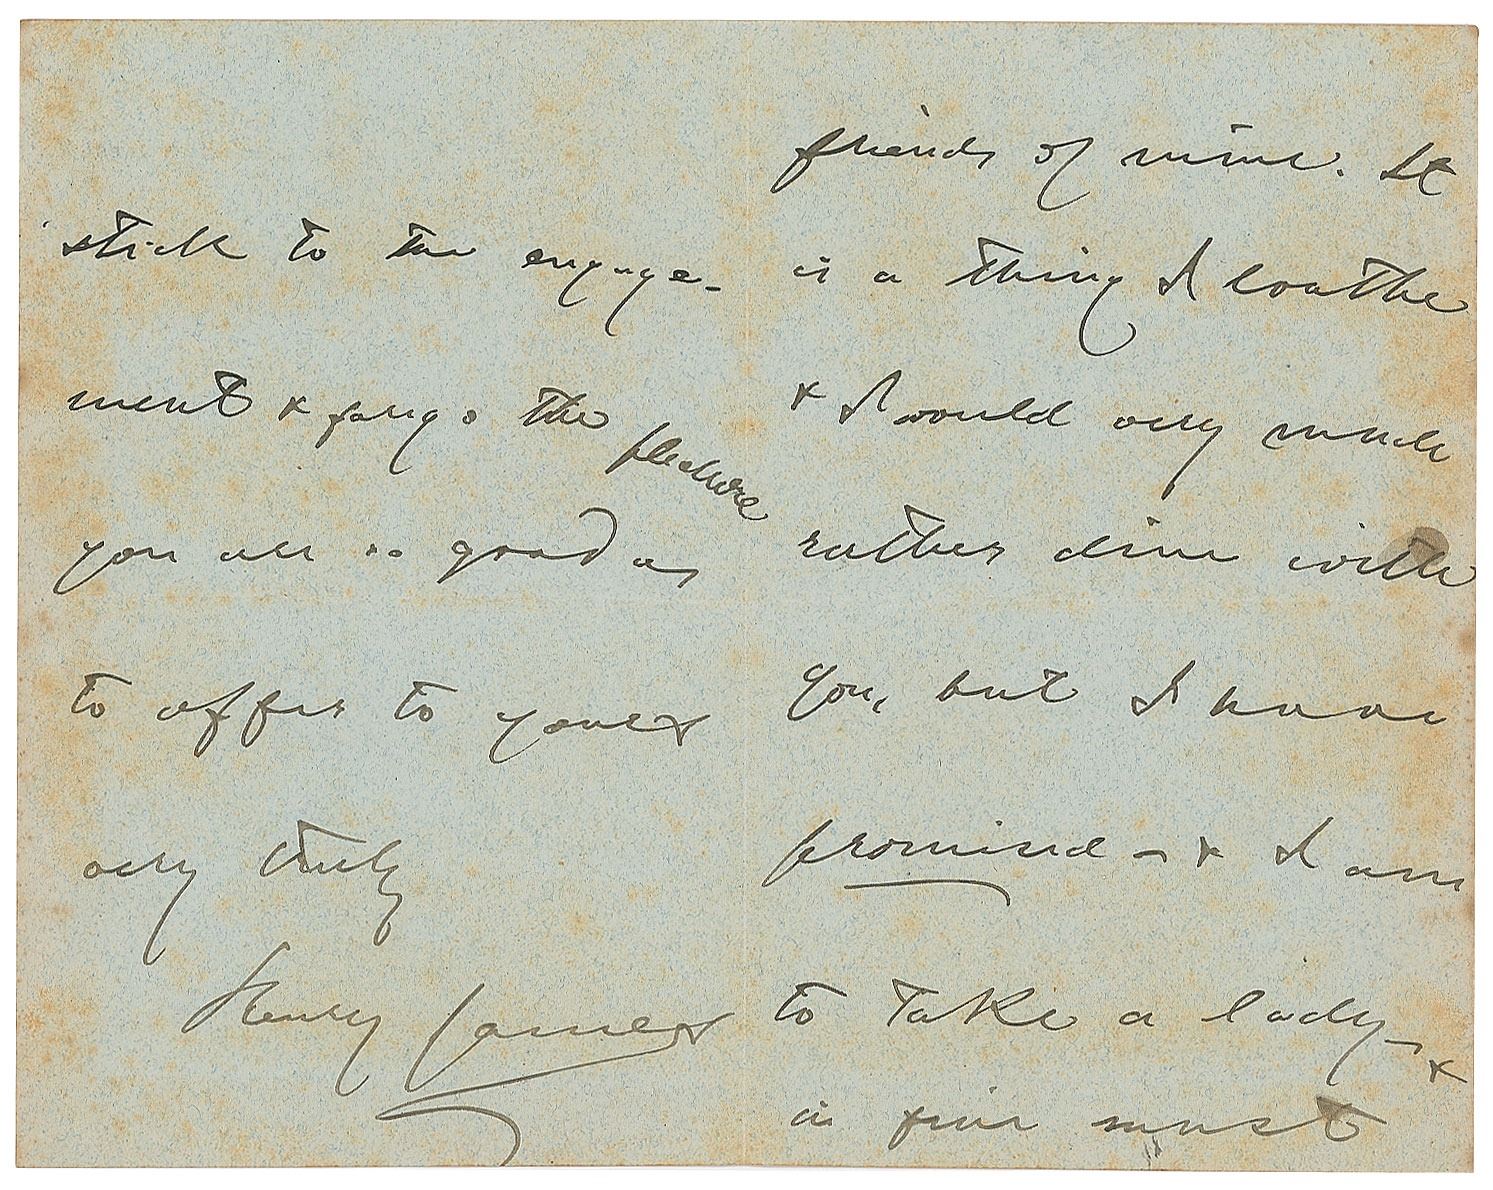 friends of mine. It
is a thing I loathe
& I would very much
rather dine with
you, but I have
promised – & I am
to take a lady – &
in fine must
stick to the engage-
ment & forego the pleasure
you are so good as
to offer to yours
very truly
Henry James